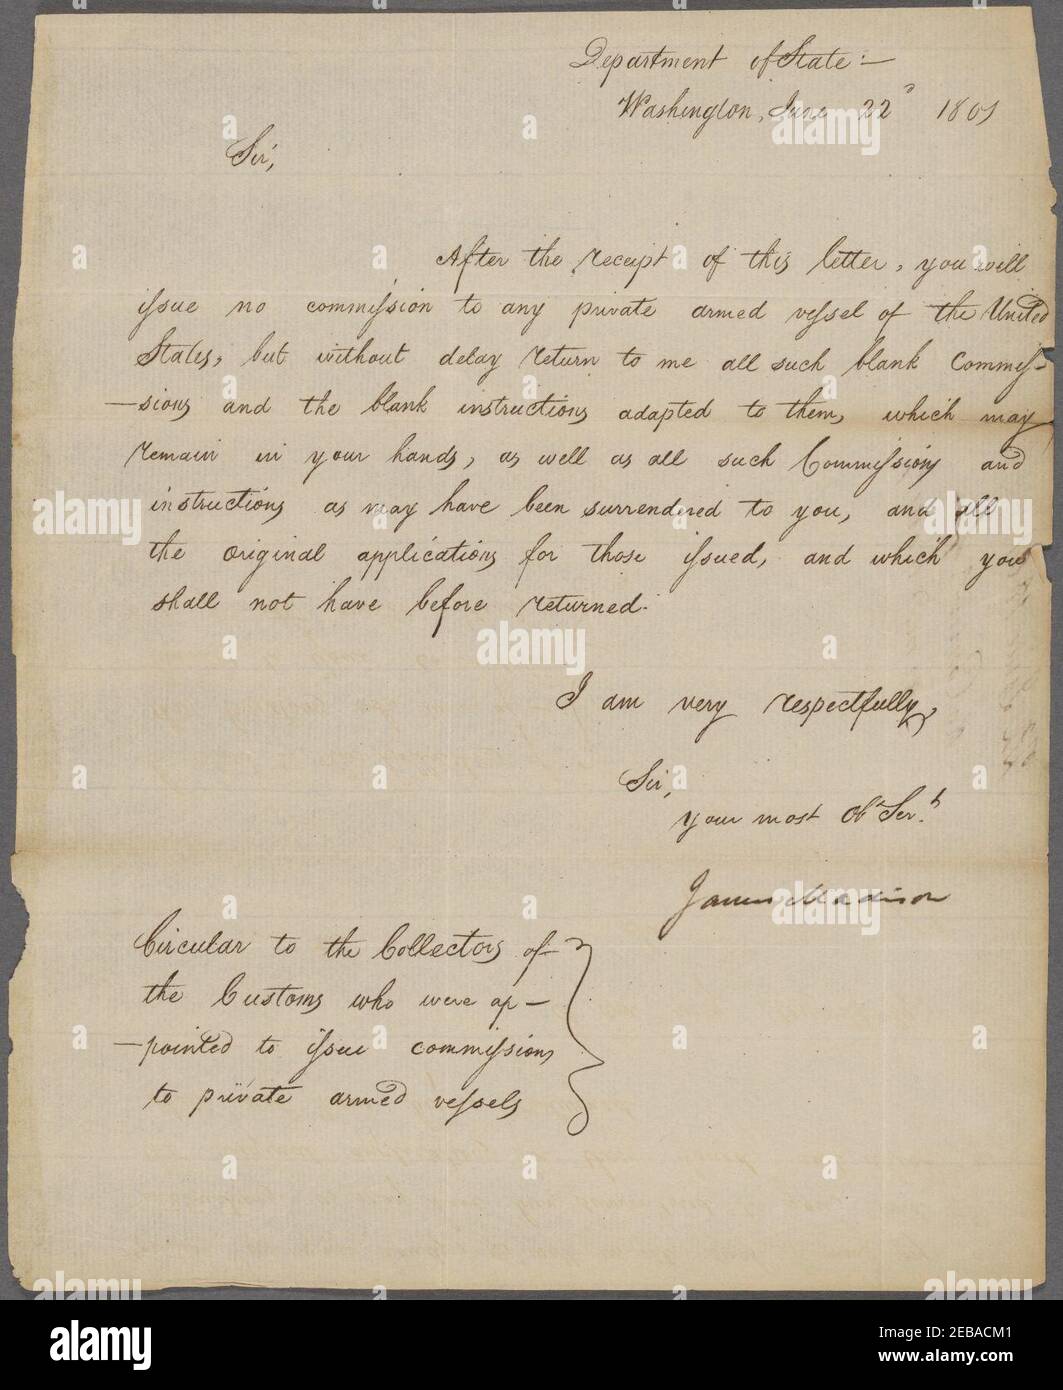 Department of State:—
Washington, June 22d 1801
Sir,
After the receipt of this letter, you will
issue no commission to any private armed vessel of the United
States, but without delay return to me all such blank Commis-
-sions and the blank instructions adapted to them, which may
remain in your hands, as well as all such Commissions and
instructions as may have been surrendered to you, and all
the original applications for those issued, and which you
shall not have before returned.
I am very respectfully,
Sir,
your most Obt Servt
James Madison
Circular to the Collectors of
the Customs who were ap-
-pointed to issue commissions
to private armed vessels
alamy
Image ID: 2EBACM1
www.alamy.com